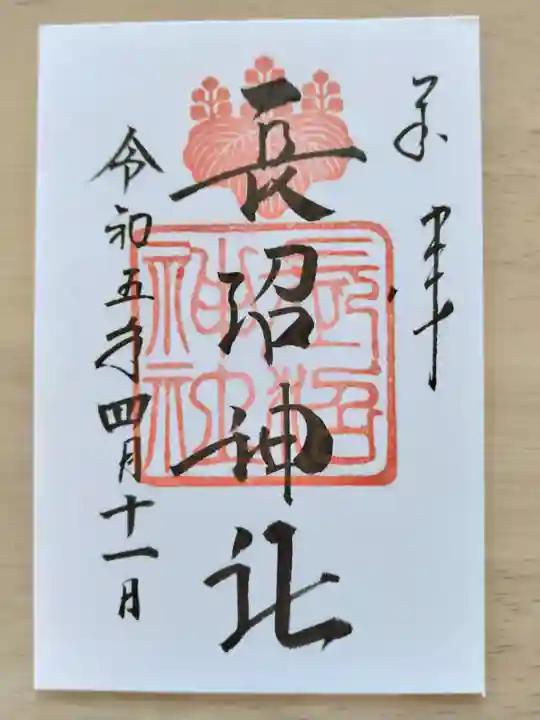 奉拝
長沼神社
長沼神社
令和五年四月十一日